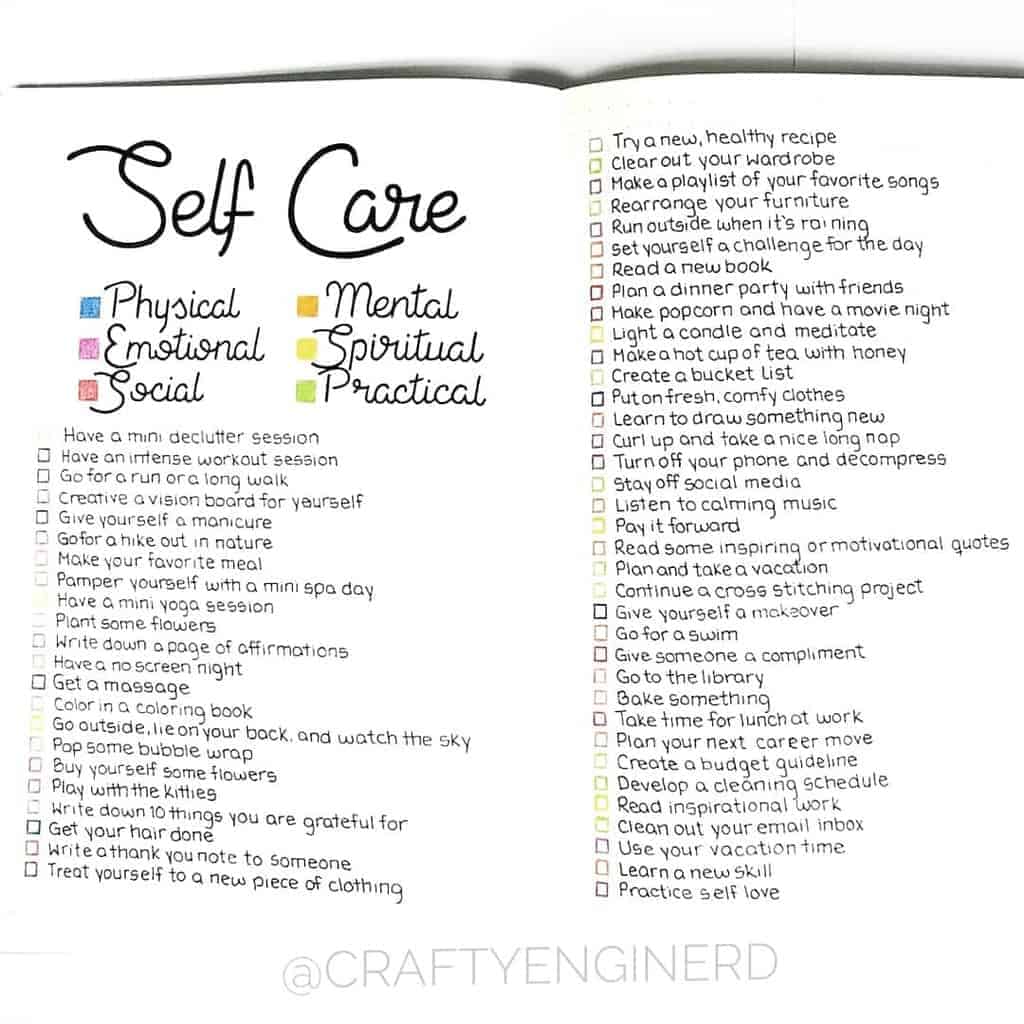 Self Care
Physical
Mental
Emotional
Spiritual
Social
Practical
Have a mini declutter session
Have an intense workout session
Go for a run or a long walk
Creative a vision board for yourself
Give yourself a manicure
Go for a hike out in nature
Make your favorite meal
Pamper yourself with a mini spa day
Have a mini yoga session
Plant some flowers
Write down a page of affirmations
Have a no screen night
Get a massage
Color in a coloring book
Go outside, lie on your back, and watch the sky
Pop some bubble wrap
Buy yourself some flowers
Play with the kitties
Write down 10 things you are grateful for
Get your hair done
Write a thank you note to someone
Treat yourself to a new piece of clothing
Try a new, healthy recipe
Clear out your wardrobe
Make a playlist of your favorite songs
Rearrange your furniture
Run outside when it's raining
Set yourself a challenge for the day
Read a new book
Plan a dinner party with friends
Make popcorn and have a movie night
Light a candle and meditate
Make a hot cup of tea with honey
Create a bucket list
Put on fresh, comfy clothes
Learn to draw something new
Curl up and take a nice long nap
Turn off your phone and decompress
Stay off social media
Listen to calming music
Pay it forward
Read some inspiring or motivational quotes
Plan and take a vacation
Continue a cross stitching project
Give yourself a makeover
Go for a swim
Give someone a compliment
Go to the library
Bake something
Take time for lunch at work
Plan your next career move
Create a budget guideline
Develop a cleaning schedule
Read inspirational work
Clean out your email inbox
Use your vacation time
Learn a new skill
Practice self love
@CRAFTYENGINERD